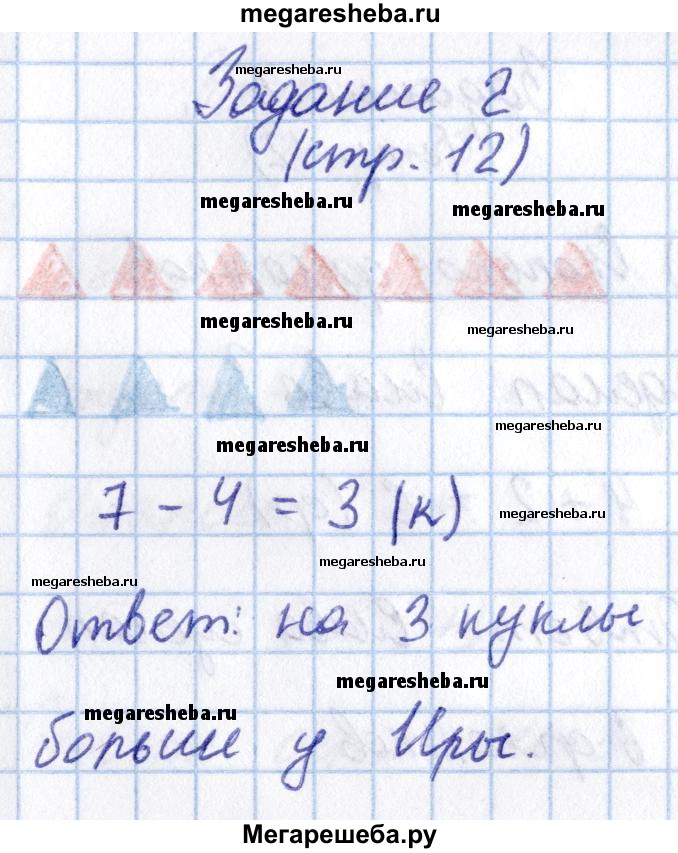 megaresheba.ru
megaresheba.ru
Задание 2
(стр. 12)
megaresheba.ru
megaresheba.ru
megaresheba.ru
megaresheba.ru
megaresheba.ru
megaresheba.ru
7 - 4 = 3 (к)
megaresheba.ru
megaresheba.ru
megaresheba.ru
Ответ: на 3 куклы
megaresheba.ru
megaresheba.ru
больше у Иры.
Мегарешеба.ру